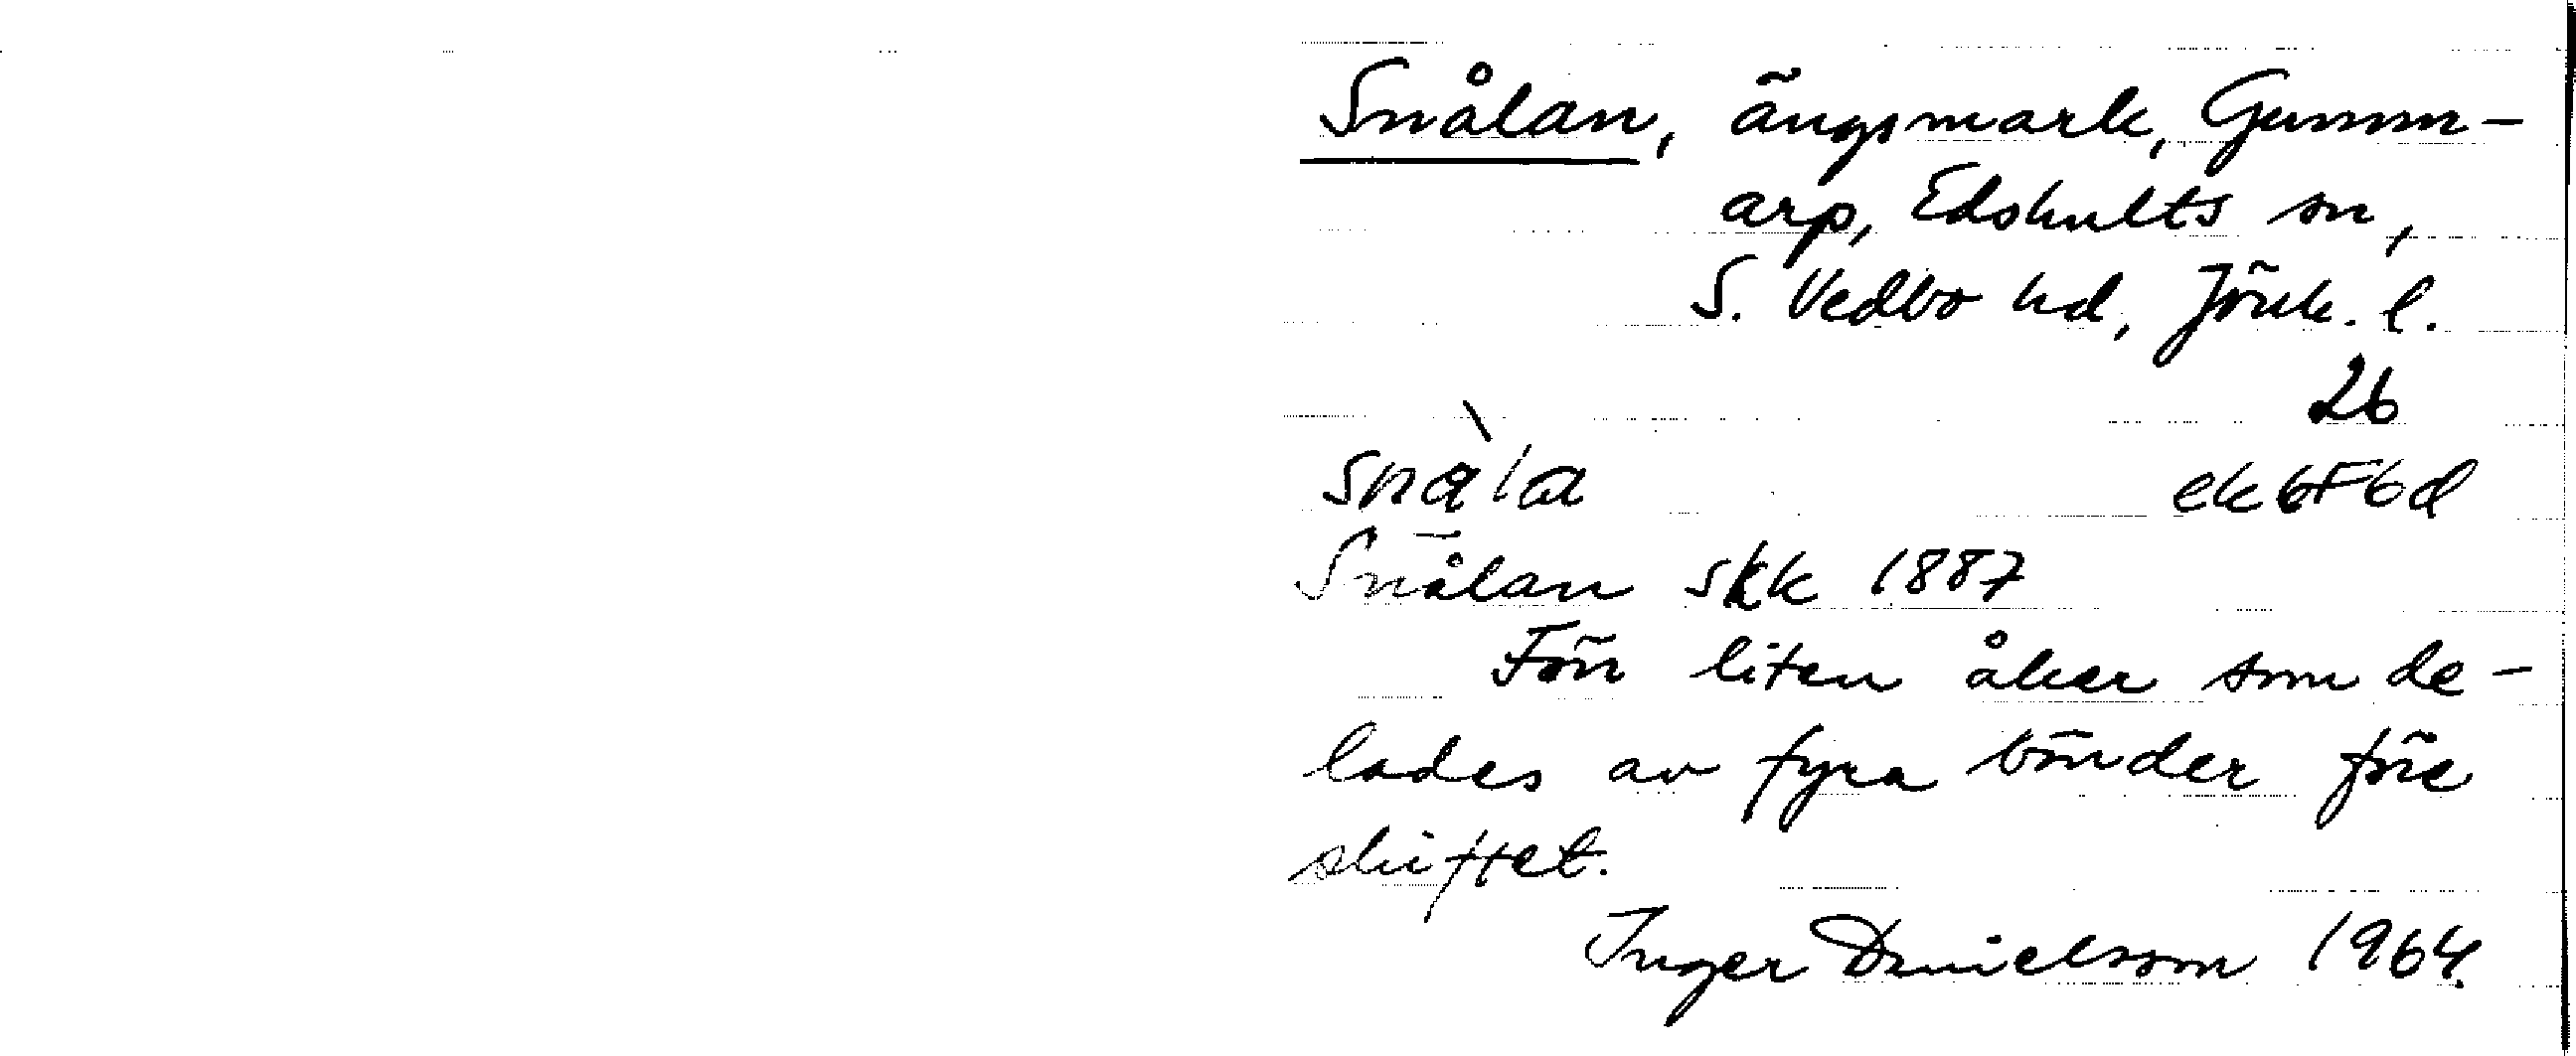 Snålan, ängsmark, Gumm-
arp, Edshults sn,
S. Vedbo hd, Jönk. l.
26
snåla ek 6F6d
Snålan skk 1887
Förr liten åker som de-
lades av fyra bönder före
skiftet.
Inger Danielsson 1964.